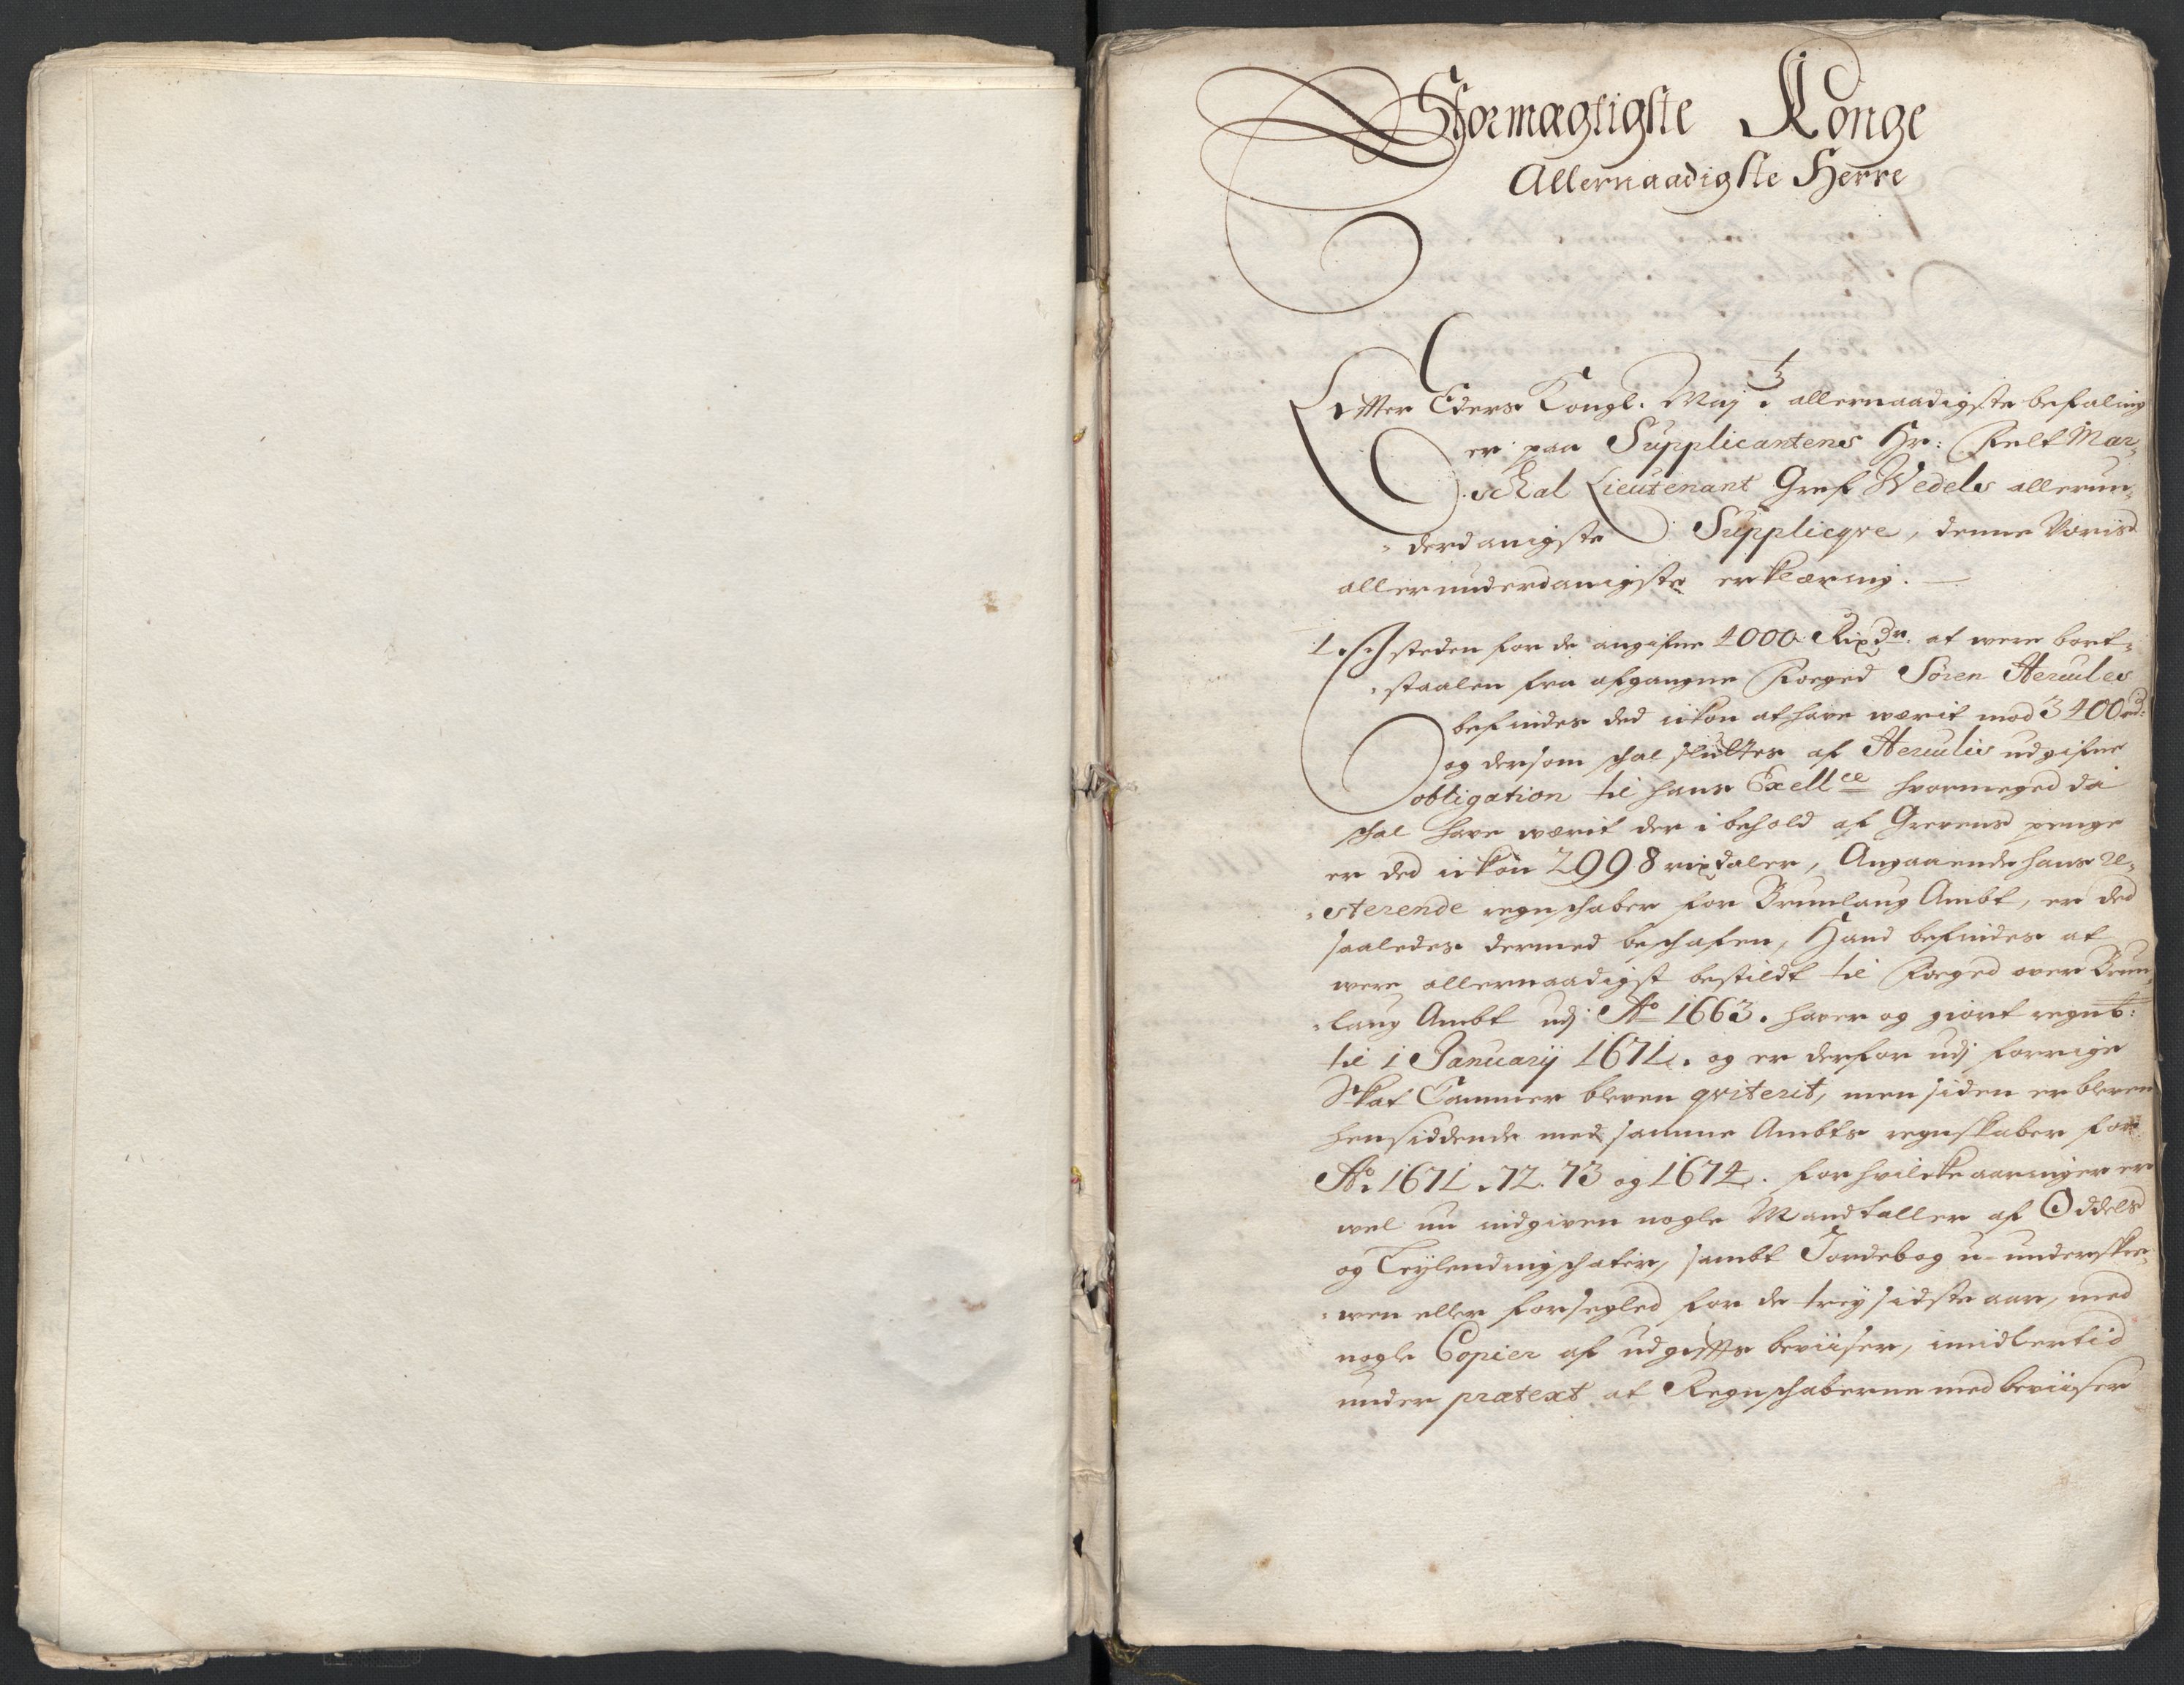 Stormægtigste Konge
Allernaadigste Herre
Effter Eders Kongl. Maj:ts allernaadigste befaling
er paa Supplicantens Hr: Felt Mar„
„schal Lieutenant Gref Wedels allerun„
„derdanigste Supplicqve, denne Voris
allerunderdanigste erklæring.
1. J steden for de angifne 4000 Rixdr. at were bort„
„staalen fra afgangne Foeged Søren Hercules
befindes ded ickon at have wærit mod 3400 rd:
og dersom schal sluttes af Herculis udgifne
obligation til hans Exellce hvormeged da
schal have wærit der i behold af Grevens penge
er ded ickon 2998 rixdaler, Angaaende hans re„
„sterende regnschaber for Brunlaug Ambt, er ded
saaledes dermed beschafen, Hand befindes at
were allernaadigst bestildt til Foeged over Brun„
„laug Ambt udj Ao 1663. haver og giort regnsb:
til 1 Januarij 1671. og er derfor udj forrige
Skat Cammer bleven qviterit, men siden er bleven
hensiddende med samme Ambts regnskaber for
Ao. 1671. 72. 73 og 1674. for hvilcke aaringer er
wel nu indgiven nogle Mandtaller af Oddels
og Leylendingschater, sambt Jordebog u-underskre„
„wen eller forsegled for de trey sidste aar, med
nogle Copier af udgiffts beviiser, imidlertid
under prætext at Regnschaberne med beviiser